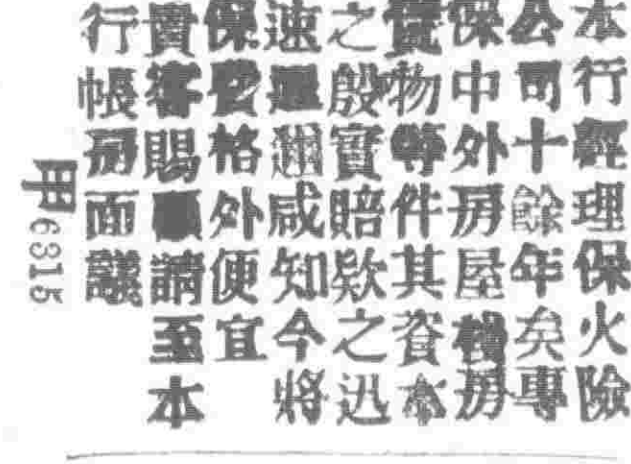 本行經理保火險
公司十餘年矣專
保中外房屋棧房
貨物等件其資本
之殷實賠欵之迅
速遐邇咸知今將
保費格外便宜
貴客賜顧請至本
行帳房面議
甲6315